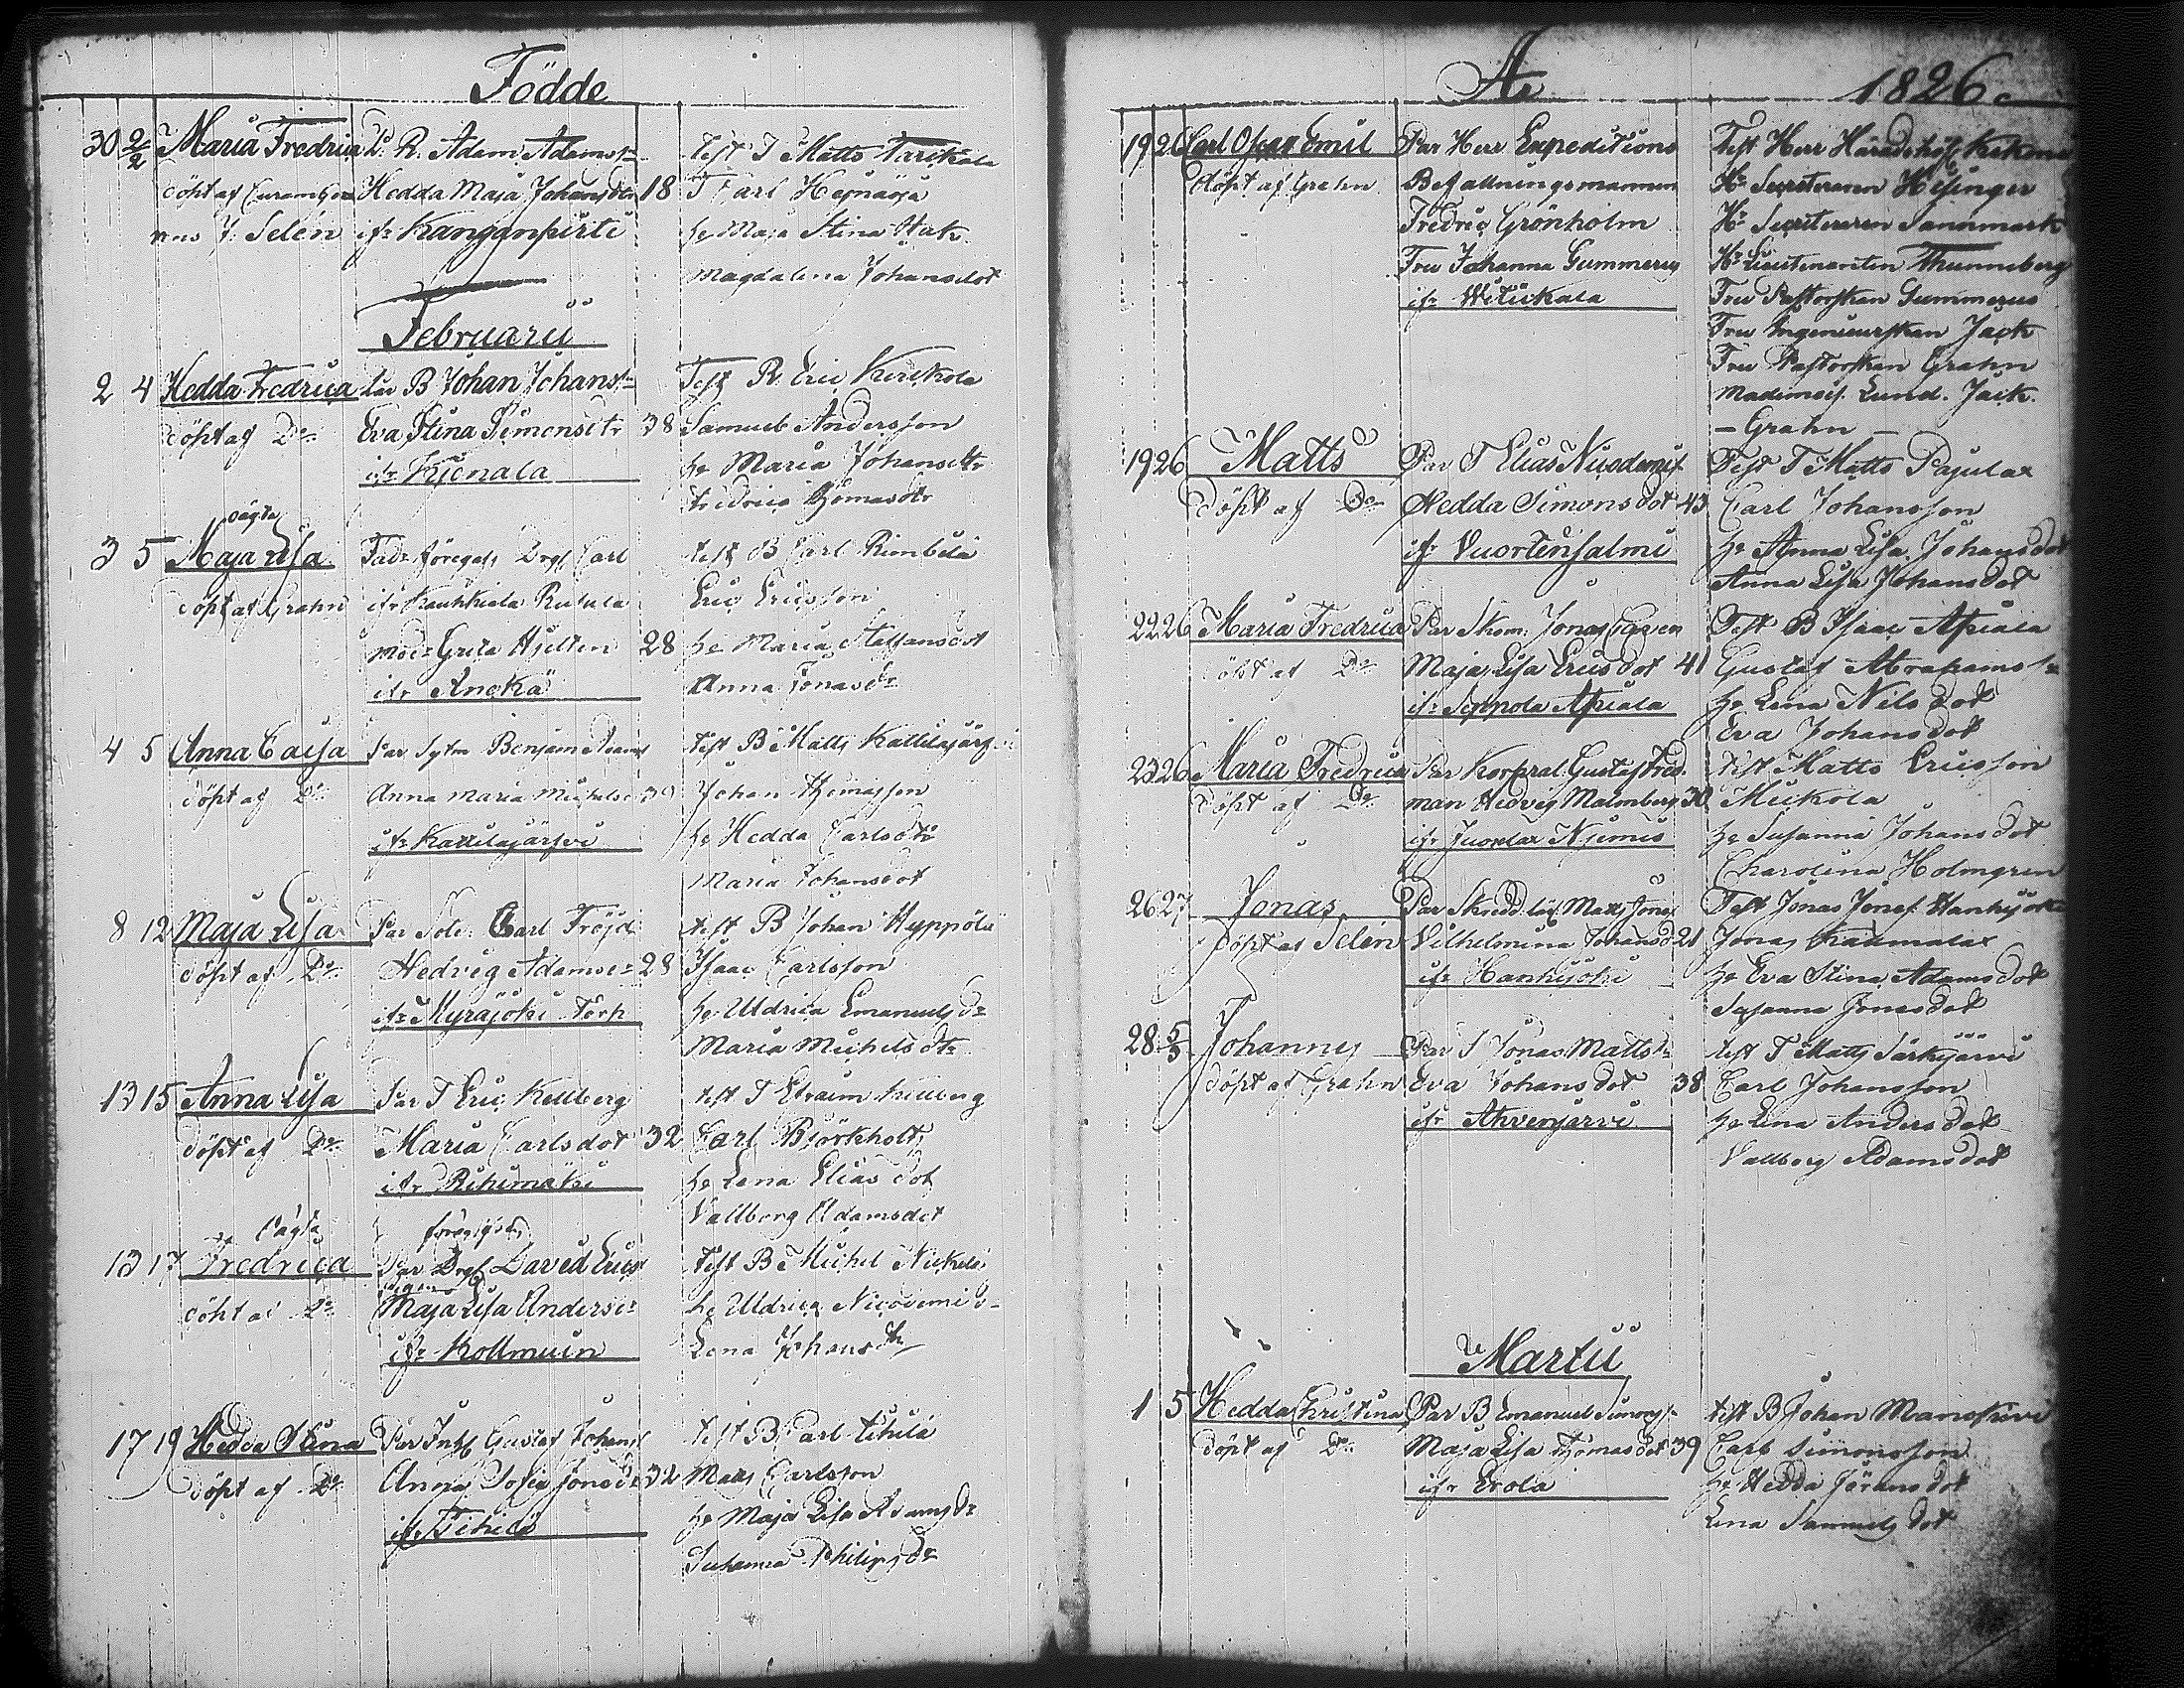 Födde
30 2/2 Maria Fredrica P. R. Adam Adamss:
test T Matts
döpt af Hedda Maja Johansdtr 18 T Carl
J. Selén ifr Kanganpirti
he Maja Stina
Magdalena Johansdot
Februarii
2 4 Hedda Fredrica Par B Johan Johanss:
Test R Eric Kerikola
döpt af Do Eva Stina Simonsdtr 38 Samuel Andersson
ifr Kjenala
he Maria Johansdtr
Fredrica Thomasdtr
oägta
3 5 Maja Lisa Fad: föregifs Drg Carl
test B Carl Rimbilä
döpt af Grahn ifr Rutula
Eric Ericsson
Mod: Greta Hjelten 28 he Maria Staffansdot
ifr
Anna Jonasdr
4 5 Anna Caisa Par Sytn Benjam Adams
test B Matts Kattilajärfvi
döpt af Do Anna Maria Michelsd 39 Johan Thomasson
ifr Kattilajärfvi
he Hedda Carlsdtr
Maria Johansdot
8 12 Maja Lisa Par Sold: Carl Fröjd
test B Johan Hyppölä
döpt af Do Hedvig Adamsd: 28 Isaac Carlsson
ifr Myräjoki Torp
he Uldrica Emanuels dr
Maria Michelsdtr
13 15 Anna Lisa Par T Eric Kellberg
test T Efraim Kellberg
döpt af Do Maria Carlsdot 32 Carl Björkholt
ifr Rihimäki
he Lena Elias dot
Vallborg Adamsdot
oägta
föregifs
13 17 Fredrica Par Drg David Erics
test B Michel Nickelä
döpt af Do Maja Lisa Andersd:
he Uldrica Nicodemi d:
ifr Kollmuin
Lena Johansdtr
17 19 Hedda Stina Par Inh Gustaf Johans
test B Carl Tihilä
döpt af Do Anna Sofia Jonsdr 32 Matts Carlsson
ifr Tihilä
he Maja Lisa Adams dr
Johanna Philips dr
År 1826
19 26 Carl Oscar Emil Par Herr Expeditions
Test Herr Häradshöf
döpt af Grahn Befallningsmannen
Hr Secreteraren Hisinger
Fredric Grönholm
Hr Secreteraren Sannmark
Fru Johanna Gummerus
Hr Lieutenanten Thunneberg
ifr Witickala
Fru Pastorskan Gummerus
Fru Ingenieurskan Jack
Fru Pastorskan Grahn
Madmois. Lund. Jack.
– Grahn –
19 26 Matts Par T Elias Nicodemi
Test T Matts Pajula
döpt af Do Hedda Simonsdot 43 Carl Johansson
ifr Vuortensalmi
he Anna Lisa Johansdot
Anna Lisa Johansdot
22 26 Maria Fredrica Par Skom: Jonas
Test B Isaac Apiala
döpt af Do Maja Lisa Ericsdot 41 Gustaf Abrahamss:
ifr Seppola Apiala
he Lena Nilsdot
Eva Johansdot
23 26 Maria Fredrica Par Korpral Gustaf Fred
test Matts Ericsson
döpt af Do man Hedvig Malmberg 30 Mickola
ifr Njemis
he Susanna Johansdot
Charolina Holmgren
26 27 Jonas Par Skredd Matts Jonss
Test Jonas Jonss Hankijoki
döpt af Selén Vilhelmina Johansd 21 Jonas
ifr Hankijoki
he Eva Stina Adamsdot
Susanna Jonsdot
28 5/3 Johannes Par T Jonas Mattss:
test T Matts Särkijärvi
döpt af Grahn Eva Johansdot 38 Carl Johansson
ifr Ahvenjärvi
he Lena Andersdot
Vallborg Adamsdot
Martii
1 5 Hedda Christina Par B Emanuel Simonss
test B Johan Manskivi
döpt af Do Maja Lisa Thomasdot 39 Carl Simonsson
ifr Erola
he Hedda Göransdot
Lena Samuelsdot